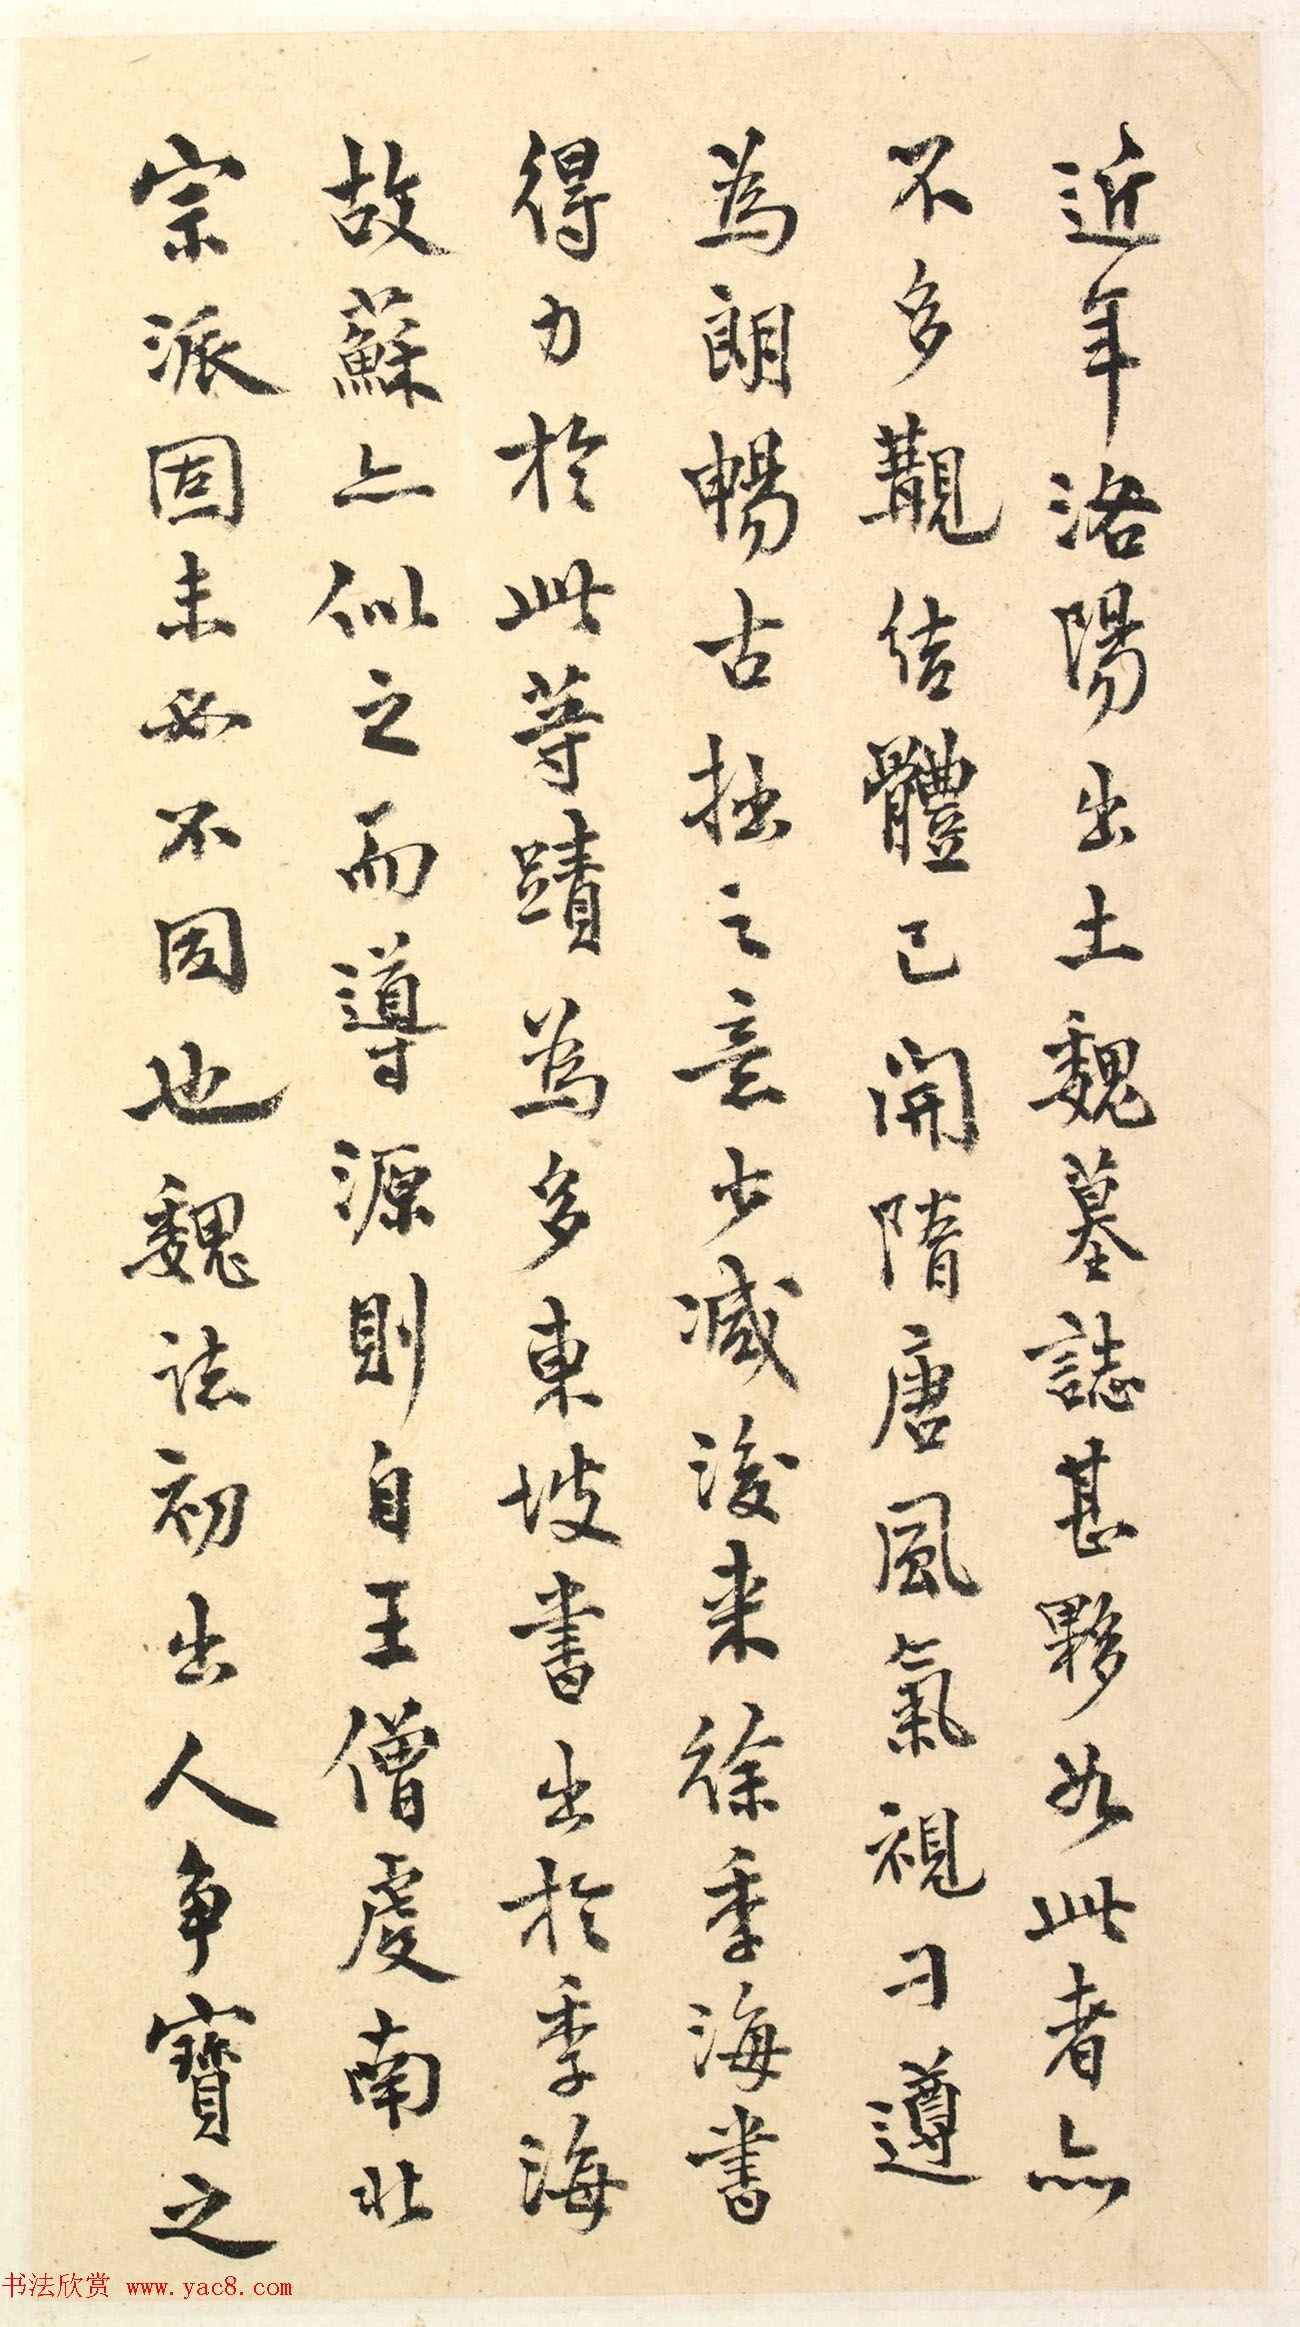 近年洛陽出土魏墓誌甚夥如此者亦
不多覯結體已開隋唐風氣視刁遵
為朗暢古拙之意少減後来徐季海書
得力於此等蹟為多東坡書出於季海
故蘇亦似之而導源則自王僧虔南北
宗派固未必不同也魏法初出人争寶之
书法欣赏 www.yac8.com